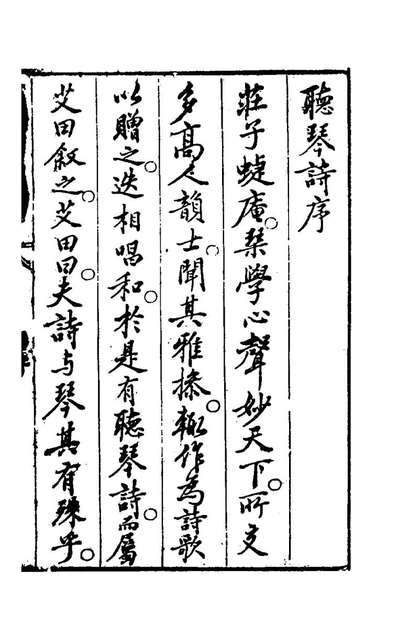 聽琴詩序
莊子蜨庵。琴學心聲妙天下。所交
多高人韻士。聞其雅操。輙作為詩歌
以贈之。迭相唱和。於是有聽琴詩。而屬
艾田敘之。艾田曰。夫詩与琴其有殊乎。